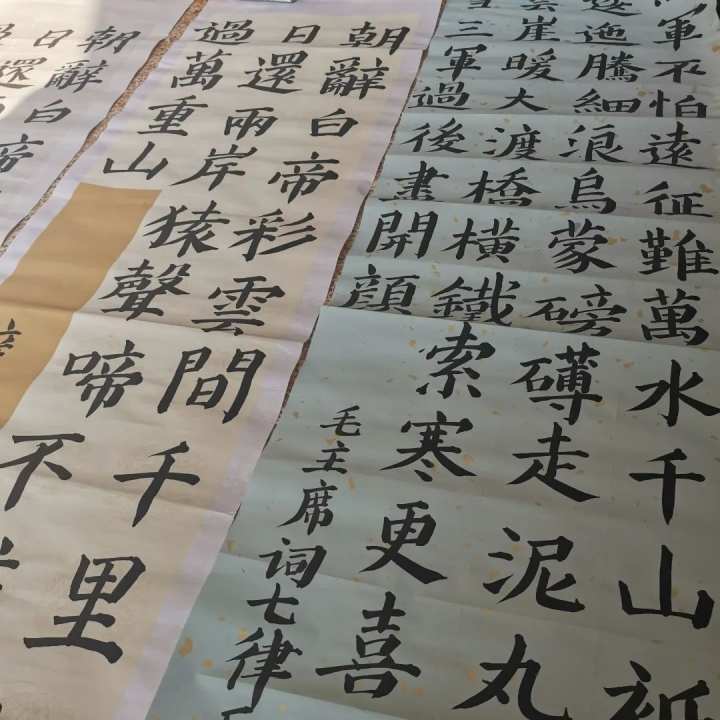 軍不怕遠征難萬水千山祇
逶迤騰細浪烏蒙磅礴走泥丸
雲崖暖大渡橋橫鐵索寒更喜
三軍過後盡開顏
毛主席詞七律
朝辭白帝彩雲間千里
日還兩岸猿聲啼不
過萬重山
朝辭白帝
日還